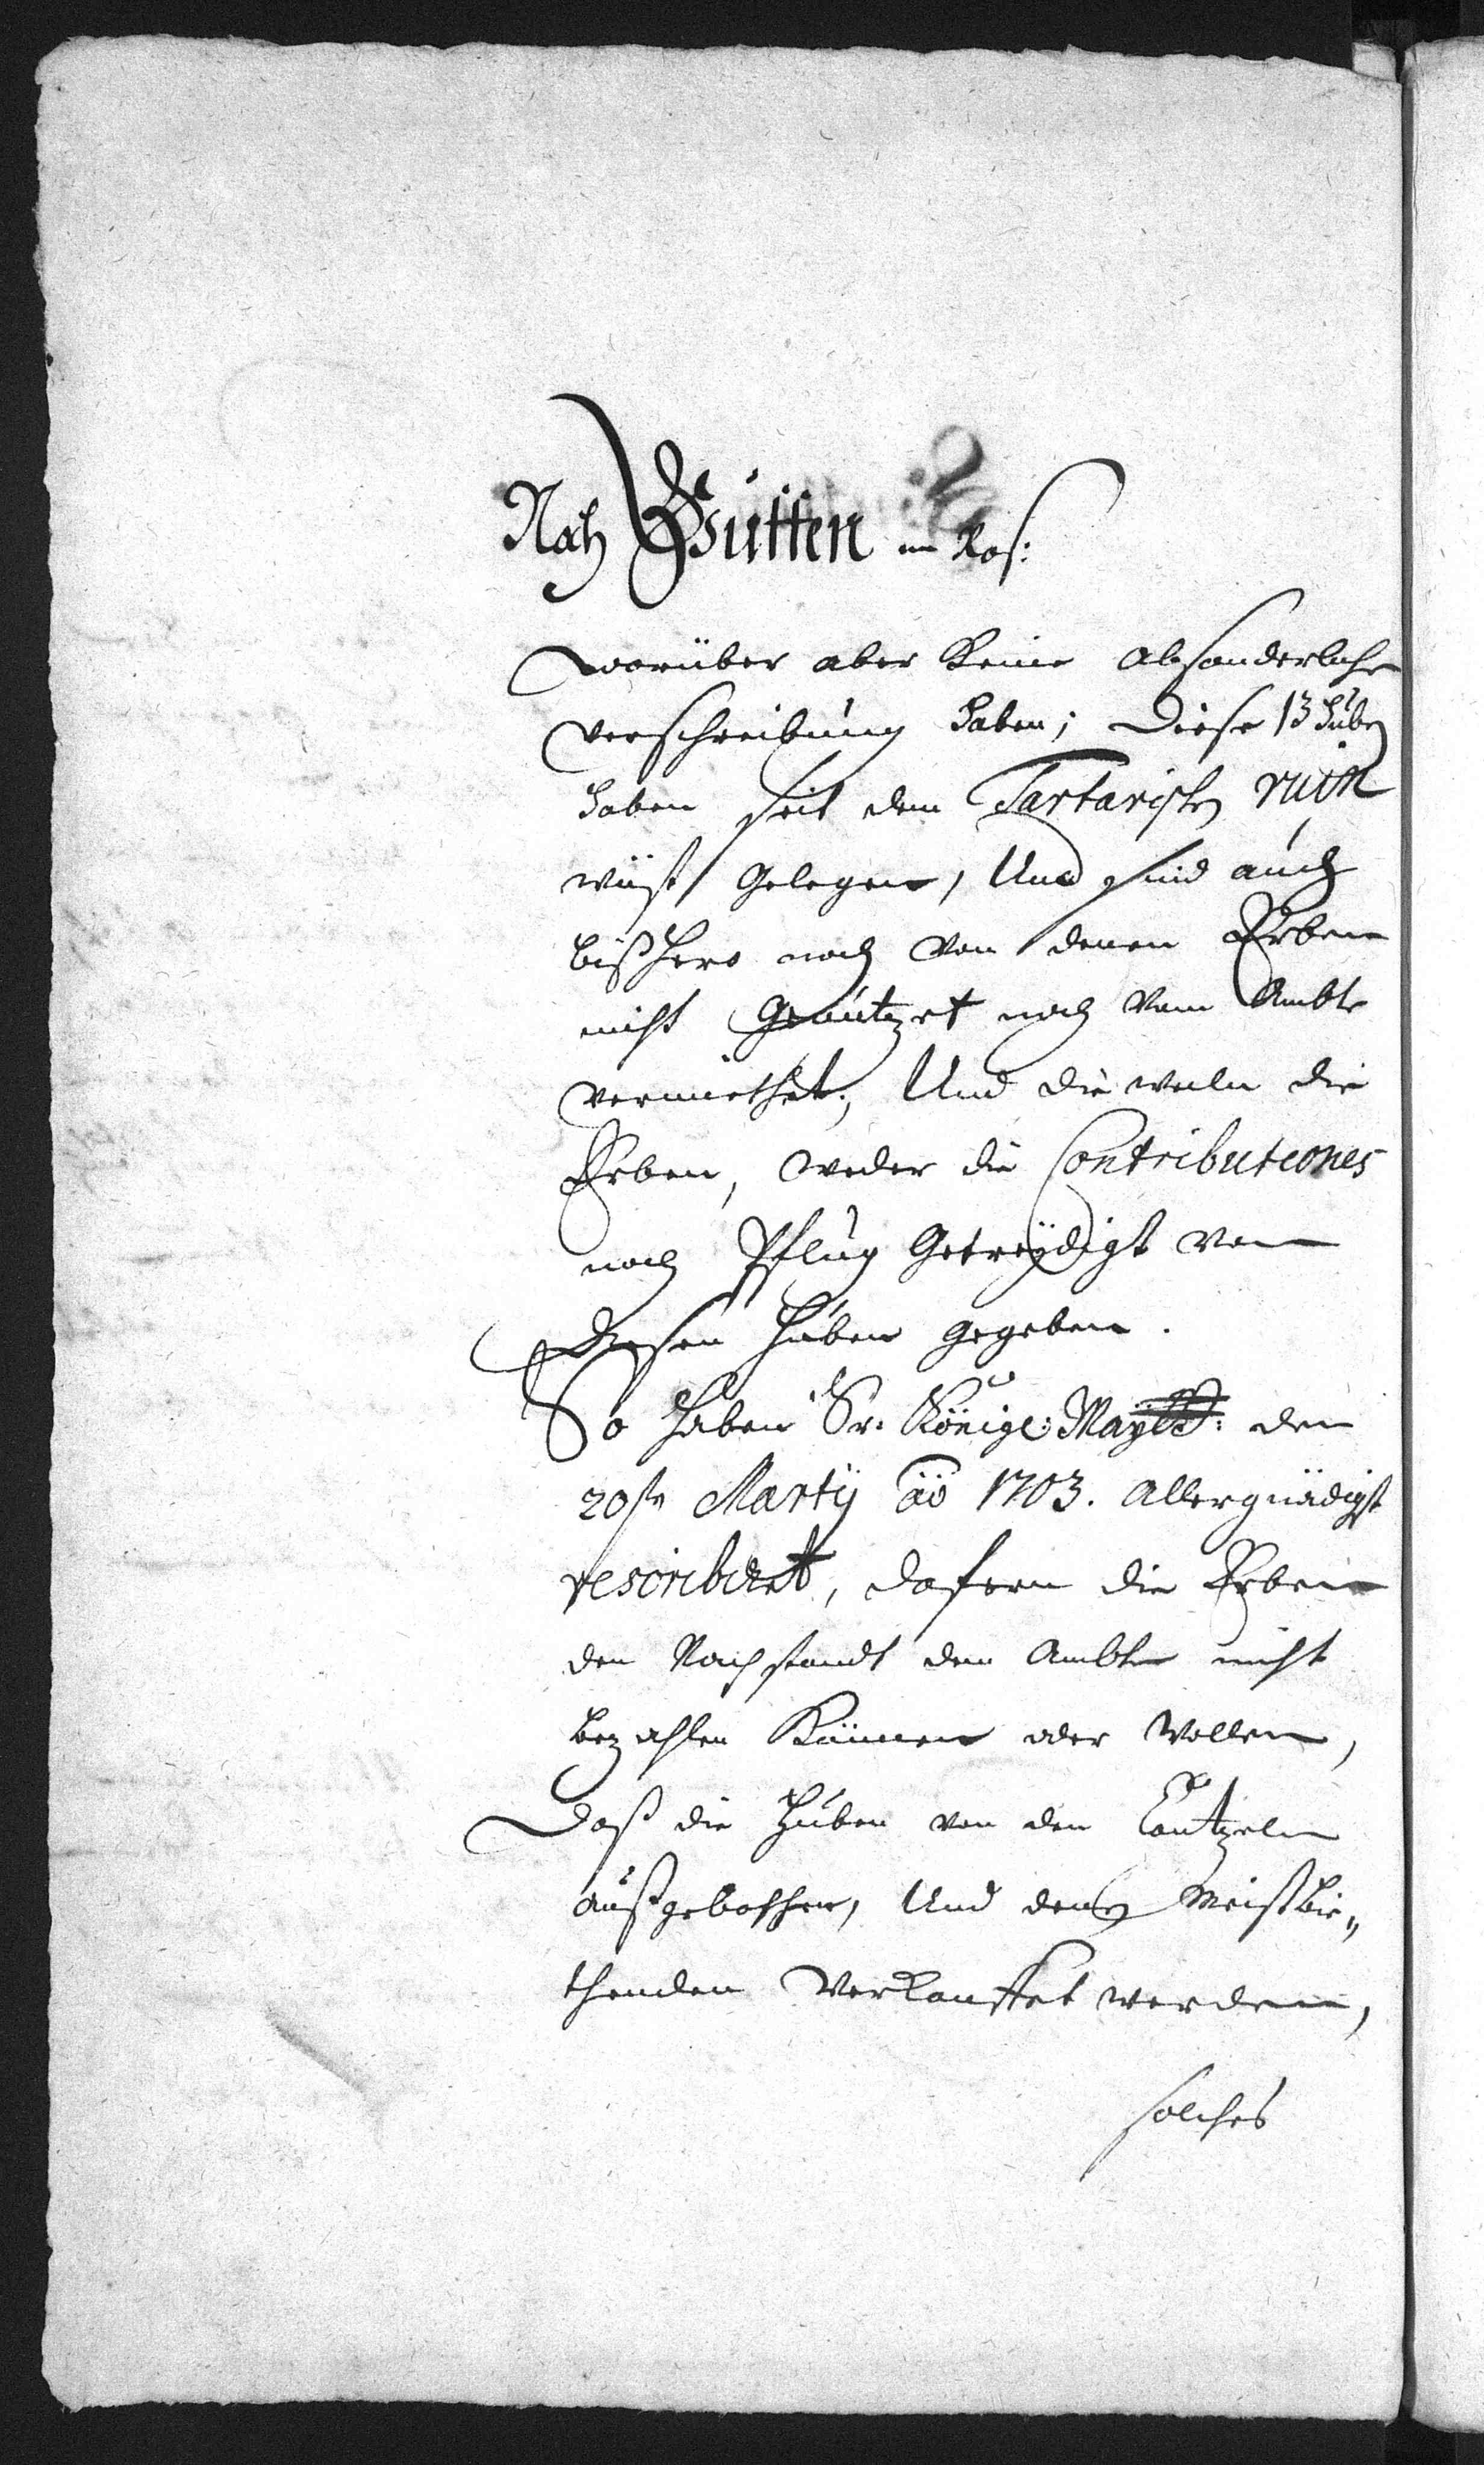 Nach Gütten im
worüber aber keine absonderliche
verschreibung haben; diese 13 Huben
haben seit dem Tartarischen ruin
wüst gelegen, Und sind auch
bißhero noch von denen Erben
nicht genützet noch vom Ambte
vermiethet; Und die weiln die
Erben, weder die Contributiones
noch Pflug Getreydigt von
diesen Huben gegeben.
So haben Sr: Königl: Maytt: den
20stn Martij ão 1703. Allergnädigst
rescribiret, dafern die Erben
den Nachstandt dem Ambte nicht
bezahlen können oder wollen,
daß die Huben von den Cantzeln
außgebothen, Und dem Meistbie„
thenden verkauffet werden,
solches